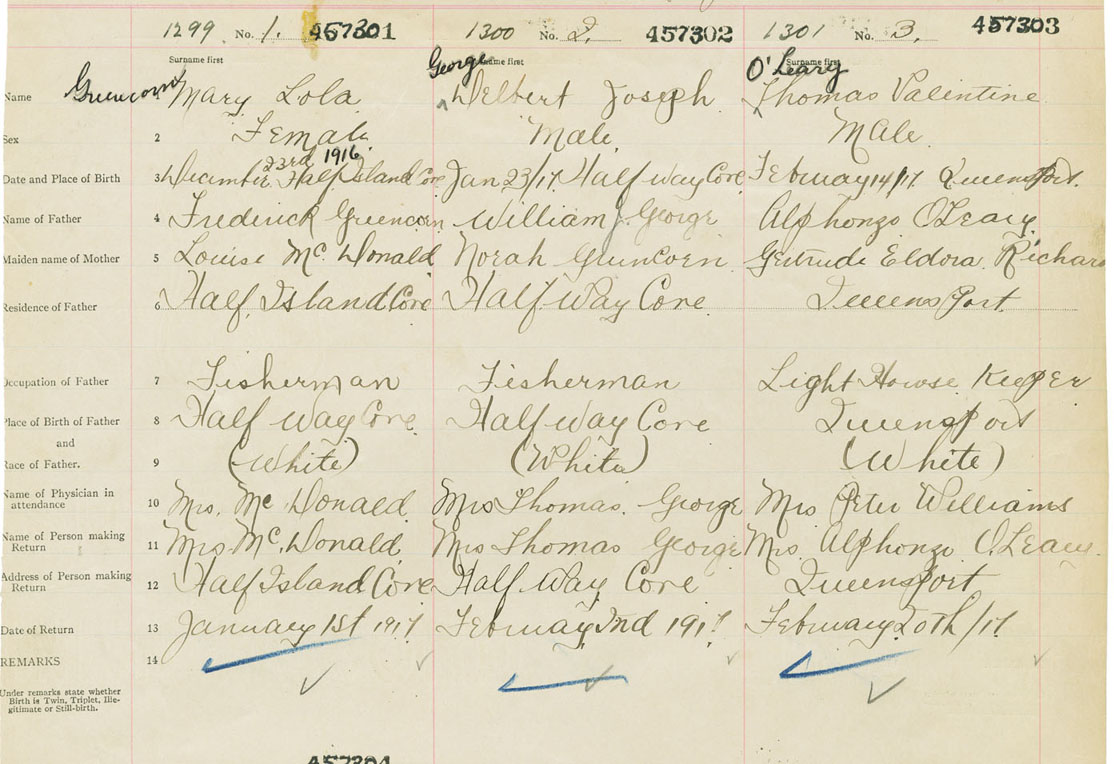 1299 No. 1. 457301 1300 No. 2. 457302 1301 No. 3. 457303
Surname first Surname first Surname first
Name Greencorn Mary Lola George Delbert Joseph O'Leary Thomas Valentine
Sex 2 Female Male. Male.
Date and Place of Birth 3 December 23rd 1916 Half Island Cove Jan 23/17 Half way Cove February 14/17 Queensport.
Name of Father 4 Frederick Greencorn William J. George Alphonzo O'Leary
Maiden name of Mother 5 Louise Mc Donald Norah Greencorn Gertrude Eldora Richard
Residence of Father 6 Half Island Cove Half Way Cove Queensport
Occupation of Father 7 Fisherman Fisherman Light House Keeper
Place of Birth of Father 8 Half Way Cove Half Way Cove Queensport
and
Race of Father. 9 (White) (White) (White)
Name of Physician in attendance 10 Mrs. Mc Donald Mrs Thomas. George Mrs Peter Williams
Name of Person making Return 11 Mrs. Mc. Donald Mrs Thomas George Mrs. Alphonzo O'Leary.
Address of Person making Return 12 Half Island Cove Half Way Cove Queensport
Date of Return 13 January 1st 1917. February 2nd 1917 February 20th/17.
REMARKS 14
Under remarks state whether
Birth is Twin, Triplet, Ille-
gitimate or Still-birth.
457304